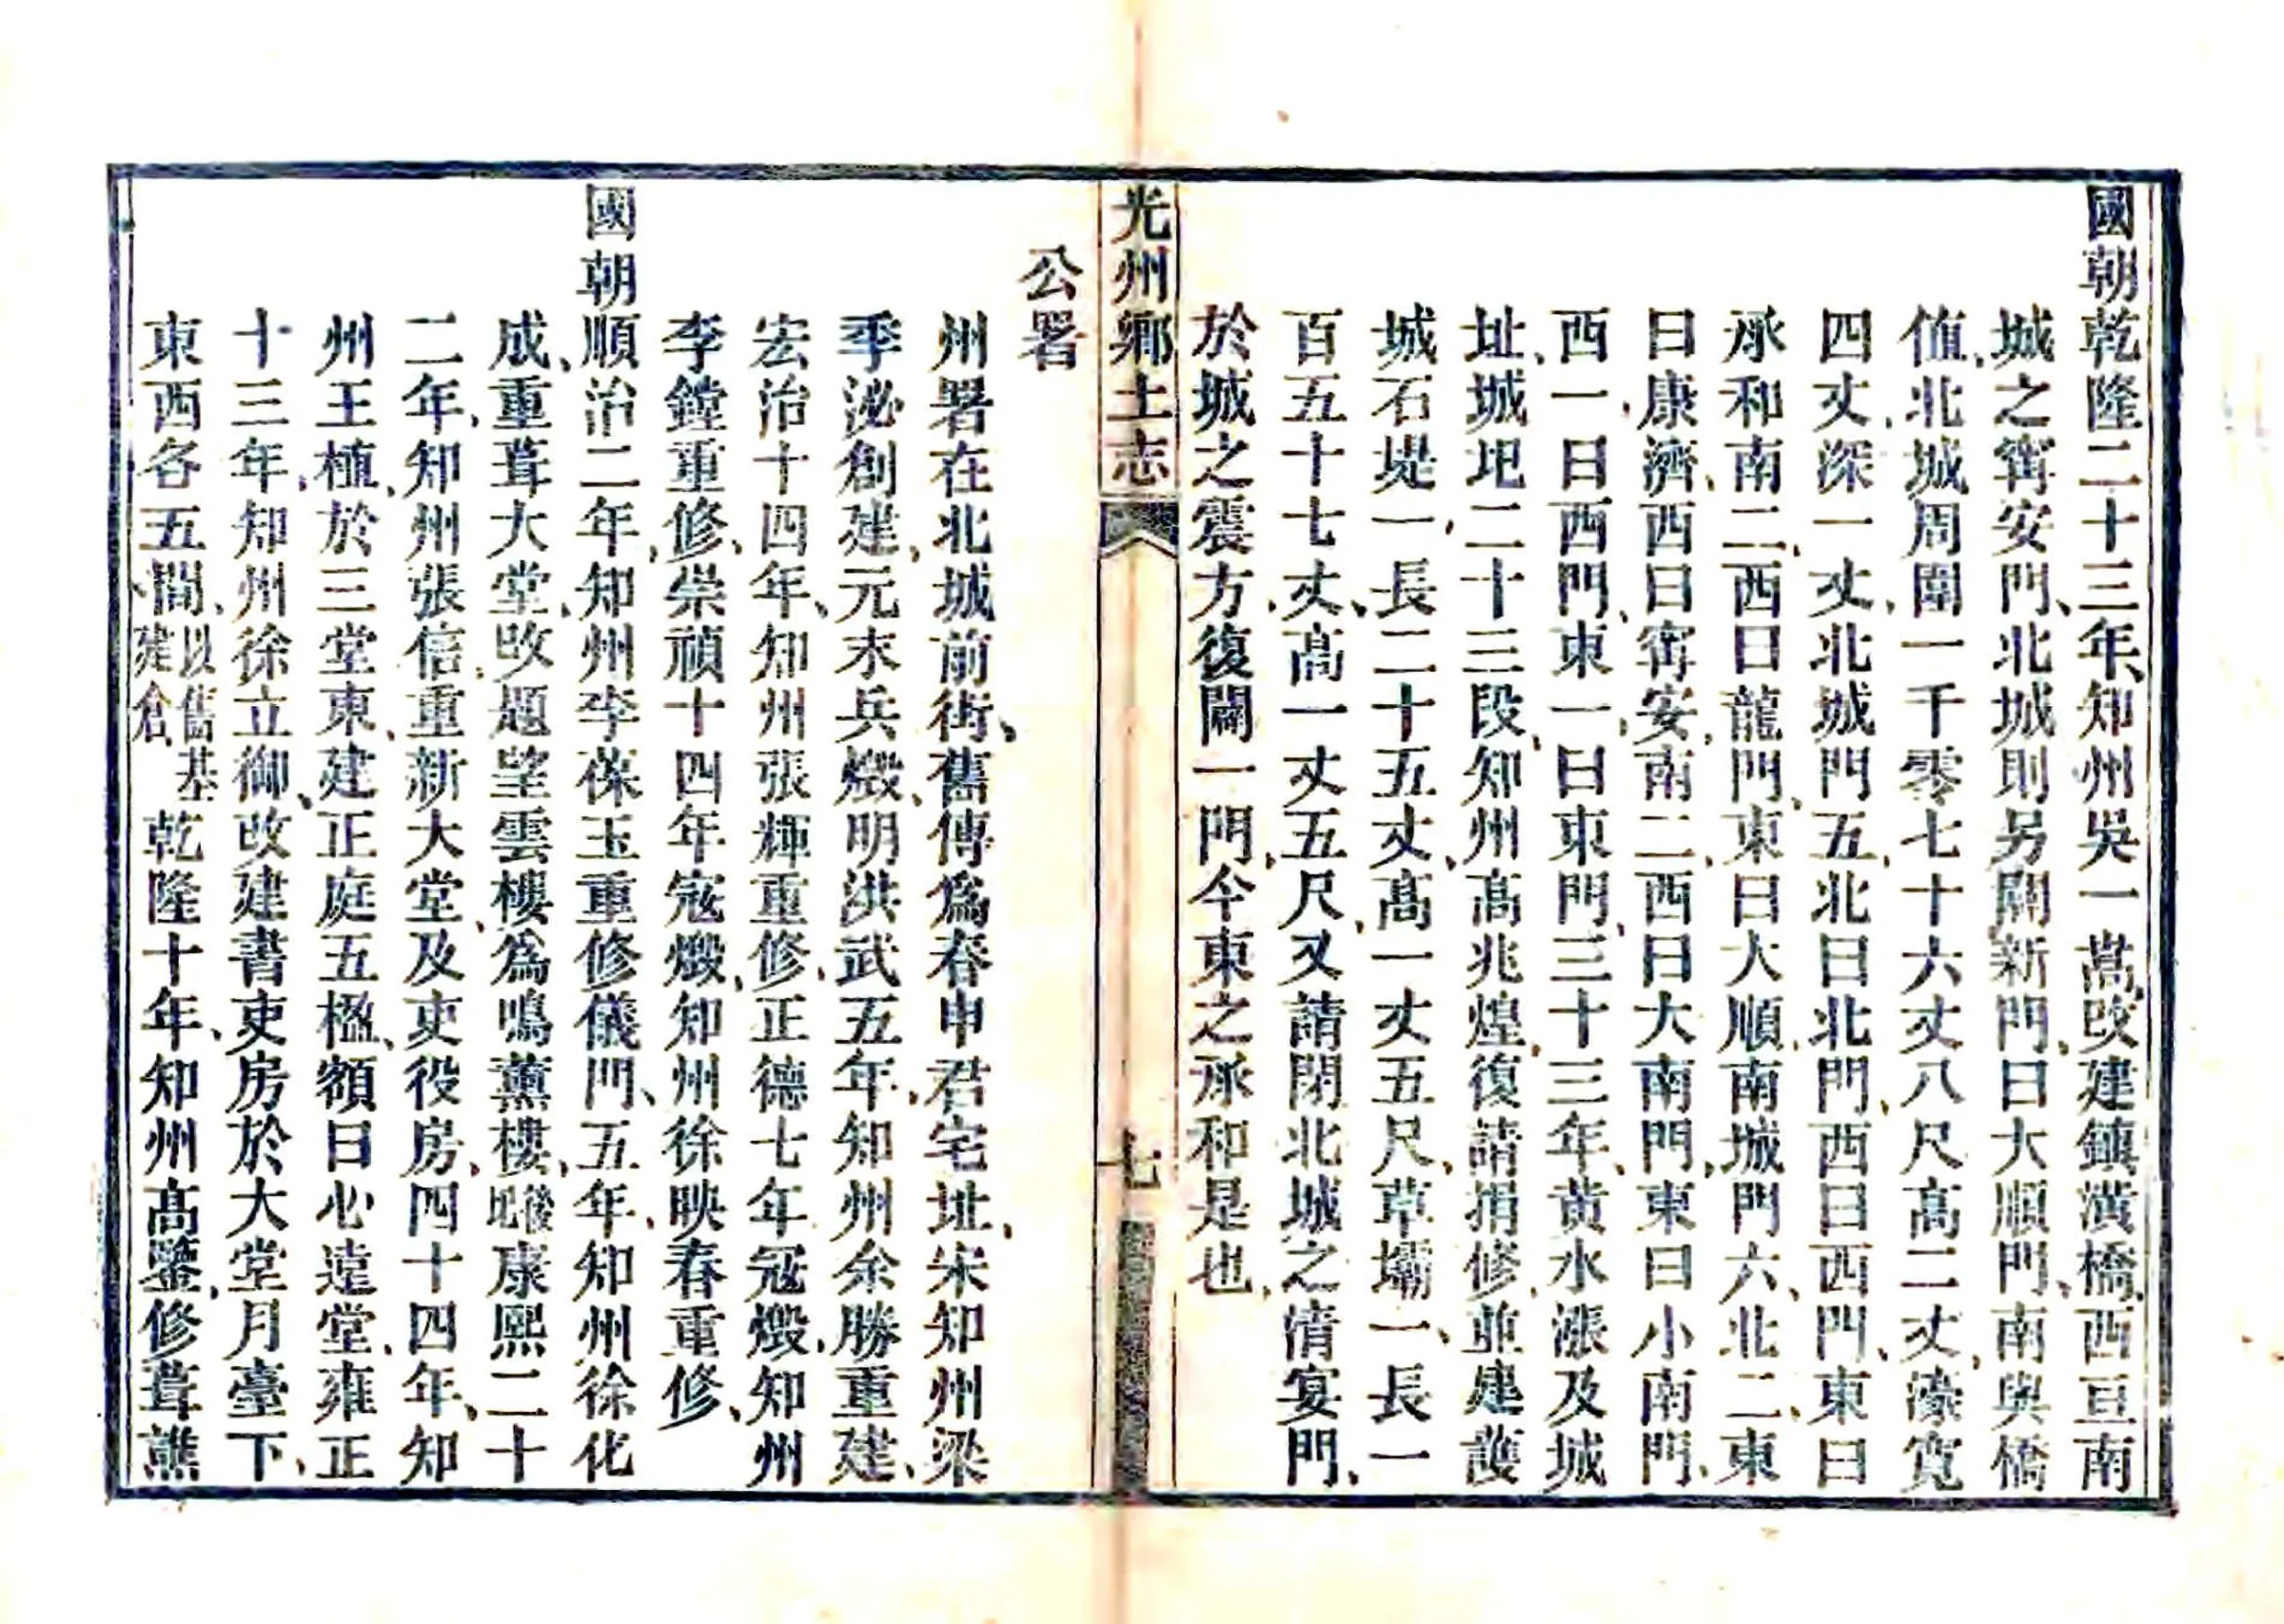 國朝乾隆二十三年、知州吳一嵩、改建鎮潢橋、西亘南
城之甯安門、北城則另闢新門、曰大順門、南與橋
值、北城周圍一千零七十六丈八尺高二丈、濠寬
四丈、深一丈、北城門五、北曰北門、西曰西門、東曰
承和南二、西曰龍門、東曰大順、南城門六、北二、東
曰康濟、西曰甯安、南二、西曰大南門、東曰小南門、
西一、曰西門、東一、曰東門、三十三年、黃水漲及城
址、城圯二十三段、知州高兆煌、復請捐修、並建護
城石堤一、長二十五丈、高一丈五尺、草壩一、長一
百五十七丈、高一丈五尺、又請閉北城之清宴門、
於城之震方、復闢一門、今東之承和是也、
光州鄉土志
七
公署
州署在北城前街、舊傳爲春申君宅址、宋知州梁
季泌創建、元末兵燬、明洪武五年、知州余勝重建、
宏治十四年、知州張輝重修、正德七年寇燬、知州
李鏜重修、崇禎十四年寇燬、知州徐映春重修、
國朝順治二年、知州李葆玉重修儀門、五年、知州徐化
成、重葺大堂、改題望雲樓、爲鳴薰樓、後圯康熙二十
二年、知州張信、重新大堂、及吏役房、四十四年、知
州王植、於三堂東、建正庭五楹、額曰心遠堂、雍正
十三年、知州徐立御、改建書吏房於大堂月臺下、
東西各五間、以舊基建倉、乾隆十年、知州高鑒、修葺譙